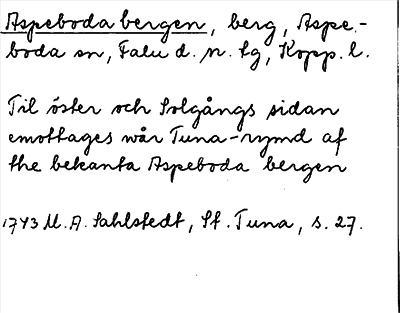 Aspeboda bergen, berg, Aspe-
boda sn, Falu d. n. tg, Kopp. l.
Til öster och Solgångs sidan
emottages wår Tuna-rymd af
the bekanta Aspeboda bergen
1743 M. A. Sahlstedt, St. Tuna, s. 27.